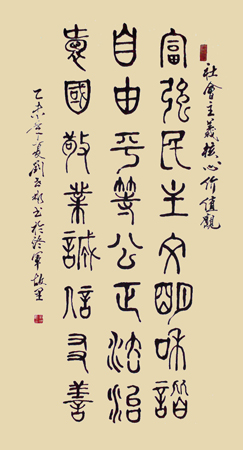 社會主義核心价值觀
富强民主文明和諧
自由平等公正法治
愛國敬業誠信友善
乙未年夏劉书於將軍故里